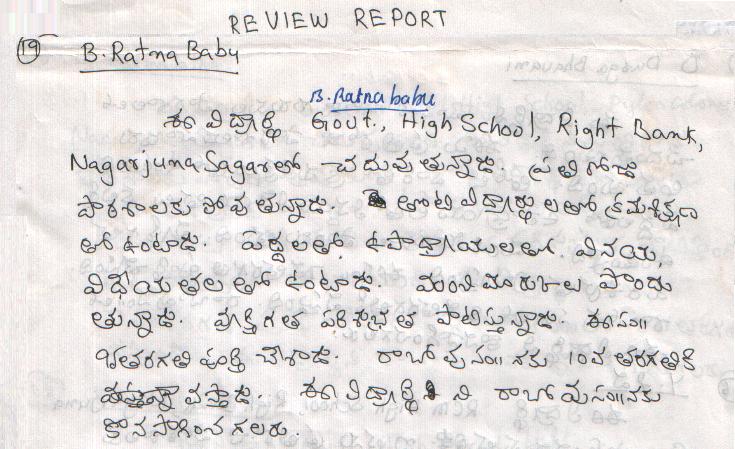 REVIEW REPORT
19 B. Ratna Babu
B. Ratna babu
ఈ విద్యార్థి Govt., High School, Right Bank,
Nagarjuna Sagar లో చదువుతున్నాడు. ప్రతి రోజు
పాఠశాలకు పోవుతున్నాడు. తోటి విద్యార్థులతో క్రమశిక్షణ
తో ఉంటాడు. పెద్దలతో, ఉపాధ్యాయులతో, వినయ,
విధేయతలతో ఉంటాడు. మంచి మార్కులు పొందు
తున్నాడు. వ్యక్తిగత పరిశుభ్రత పాటిస్తున్నాడు. ఈ సం॥
తరగతి పూర్తి చేశాడు. రాబోవు సం॥ నకు 10వ తరగతికి
వస్తాడు. ఈ విద్యార్థి ని రాబోవు సం॥నకు
కొనసాగించగలరు.